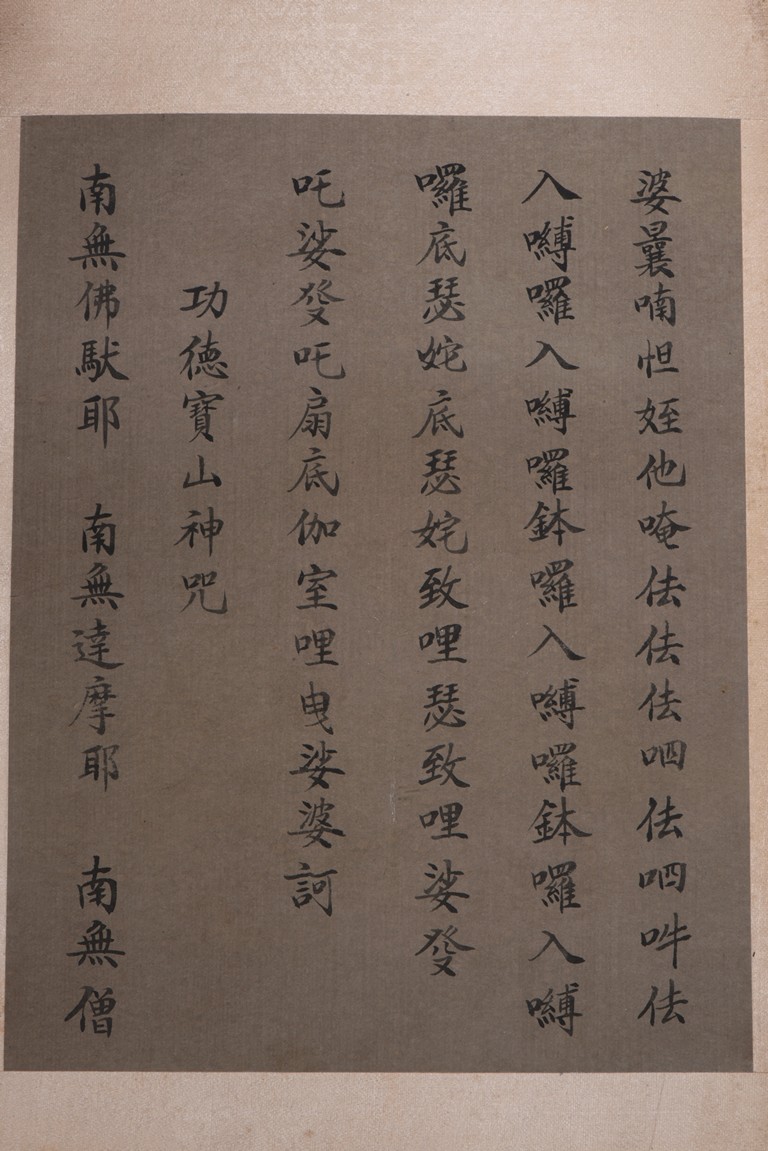 婆曩喃怛姪他唵佉佉佉呬佉呬吽佉
入嚩囉入嚩囉鉢囉入嚩囉鉢囉入嚩
囉底瑟姹底瑟姹致哩瑟致哩娑發
吒娑發吒扇底伽室哩曳娑婆訶
功德寶山神咒
南無佛馱耶 南無達摩耶 南無僧